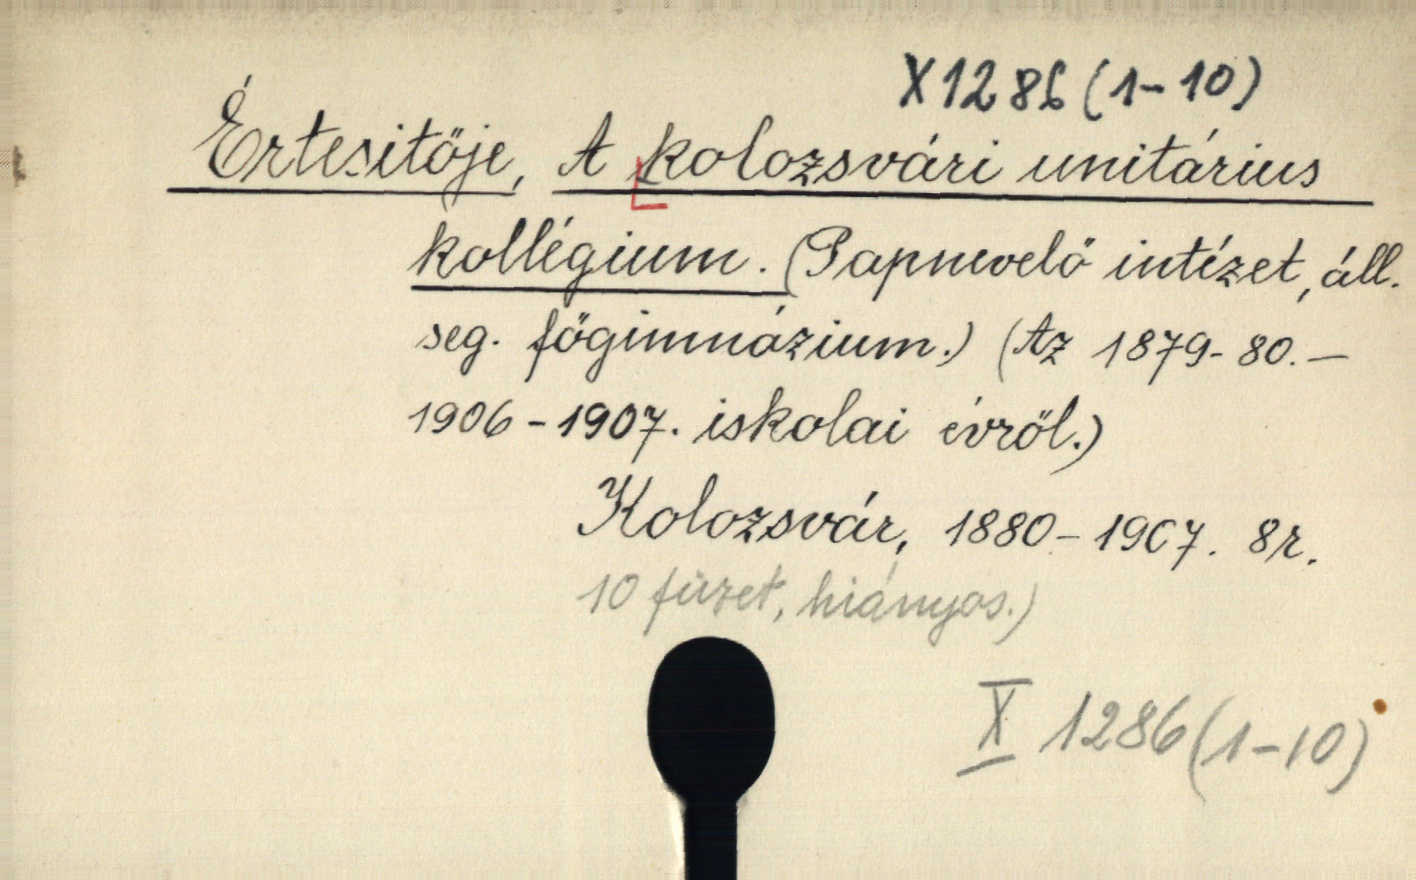 X1286 (1-10)
Értesitője, A kolozsvári unitárius
kollégium. (Papnevelő intézet, áll.
seg. főgimnázium.) (Az 1879-80. —
1906-1907. iskolai évről.)
Kolozsvár, 1880-1907. 8r.
10 füzet, hiányos.)
X 1286 (1-10)